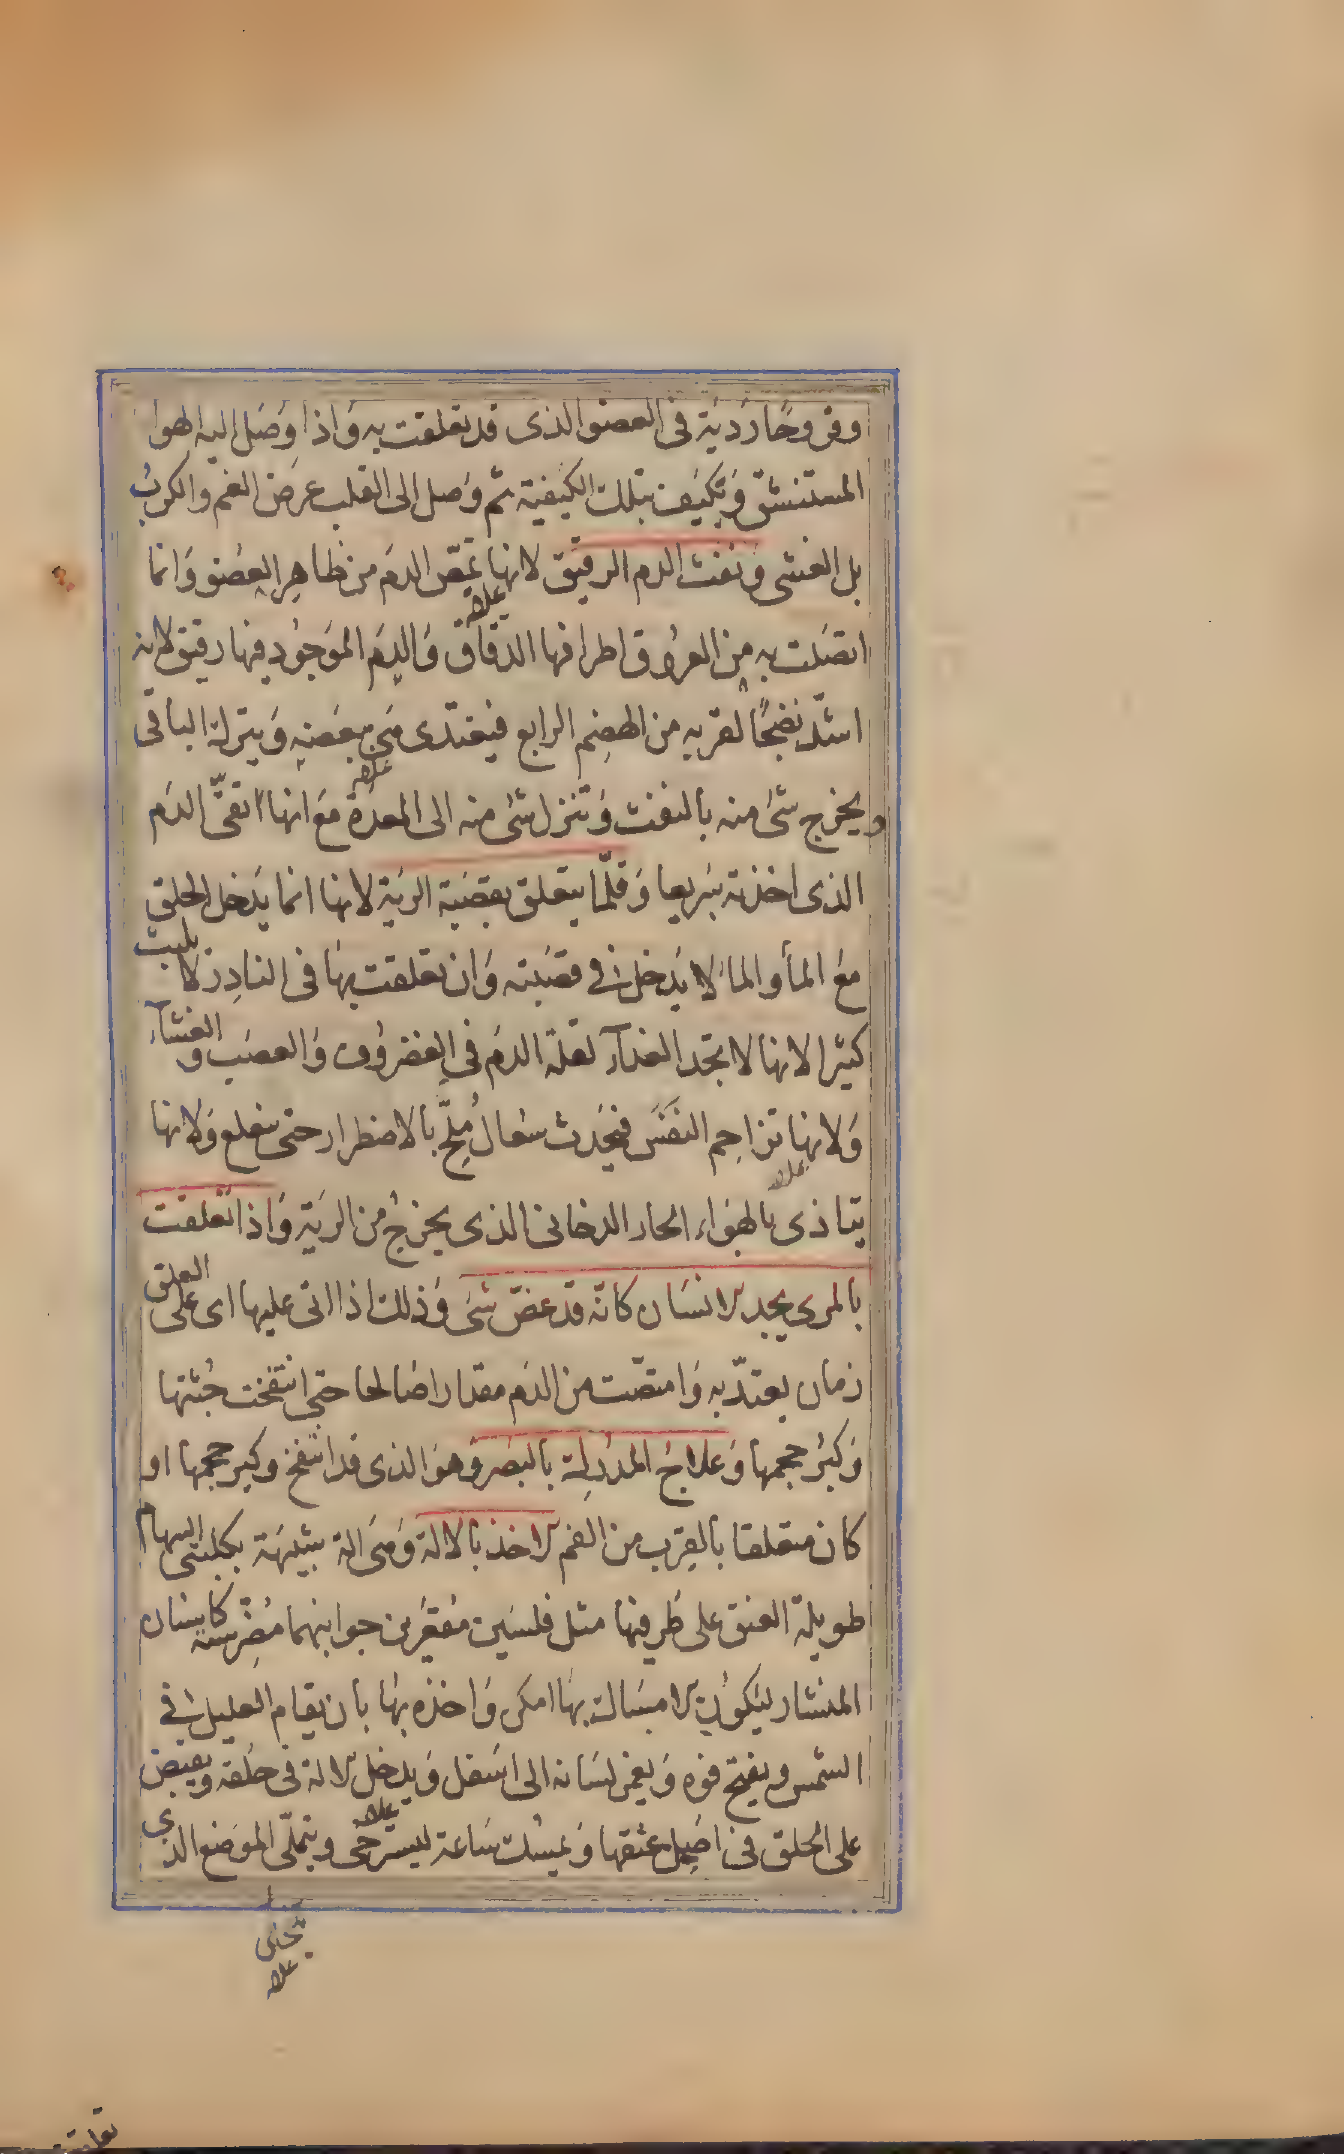 وقروحا رديّة فى العضو الذى قد تعلقت به وَاذا وصَل اليه الهوا
المستنشق وَتكيّف بتلك الكيفية ثم وَصل الى القلب عرَض الغم والكربُ
بل الغشى وَنفث الدم الرقيق لانها تمصّ الدمَ من ظاهِرِ العِضو وَانما
اتصَلت به من العرُوق اطرافها الدقاق وَالدمَ الموَجوُد فيها رقيق لانه
اشدّ نضجًا لقربه من الهضِم الرابع فيغتذى هىَ ببعضه وَيترك الباقى
ويخرج شئ منه بالنفث وَتنزل شئ منه الى المعدة مَع انها تقئّ الدَم
الذى اخذته سَريعا وَقلّما يتعلق بقصَبة الرئة لانها انما يدَخل الحلق
معَ الماء والماء لا يدَخل فى قصَبته وَان تعلقت بها فى النادِر لا يلبث
كثيرا لانها لا تجد الغذآء لقلة الدم فى الغضروُف وَالعصَب وَ الغشآء
وَلانها تزاحِم النفَس فيحدَث سُعال مُلحّ بالاضطرار حتى ينقلع وَلانها
يتاذى بالهوَاء الحار الدخانى الذى يخرجُ من الرئة وَاذا تعلقت
بالمرى يجد الانسَان كانّه قد عضّ شئ وَذلك اذا اتى عليها اى على العلق
زمان يعتدّ به وَامتصّت من الدَم مقدارا صَالحا حتى انتفخت جُثتها
وَكبُر حجمها وَعلاجُ المدرَكة بالبصَر وهوَ الذى قد انتفخ وكبر حجمها او
كان متعلقا بالقِرب من الفم الاخذ بالآلة وَهىَ الة شبيهَة بكلبتى السهام
طويلة العنق على طرفيها مثل فلسَين مقعَّر من جوانبهما مضِرّسة كاسنان
المنشار ليَكوُن الامسَاك بهَا امكن وَاخذه بهَا بان يقام العليل فى
الشمس ويفتح فوه وَيغمز لسَانه الى اسَفل وَيدخل الالة فى حَلقه ويقبض
على الحلق فى اصَل عنقها وَيمسُك سَاعة ليسترخى ويتملّى الموَضع الذى